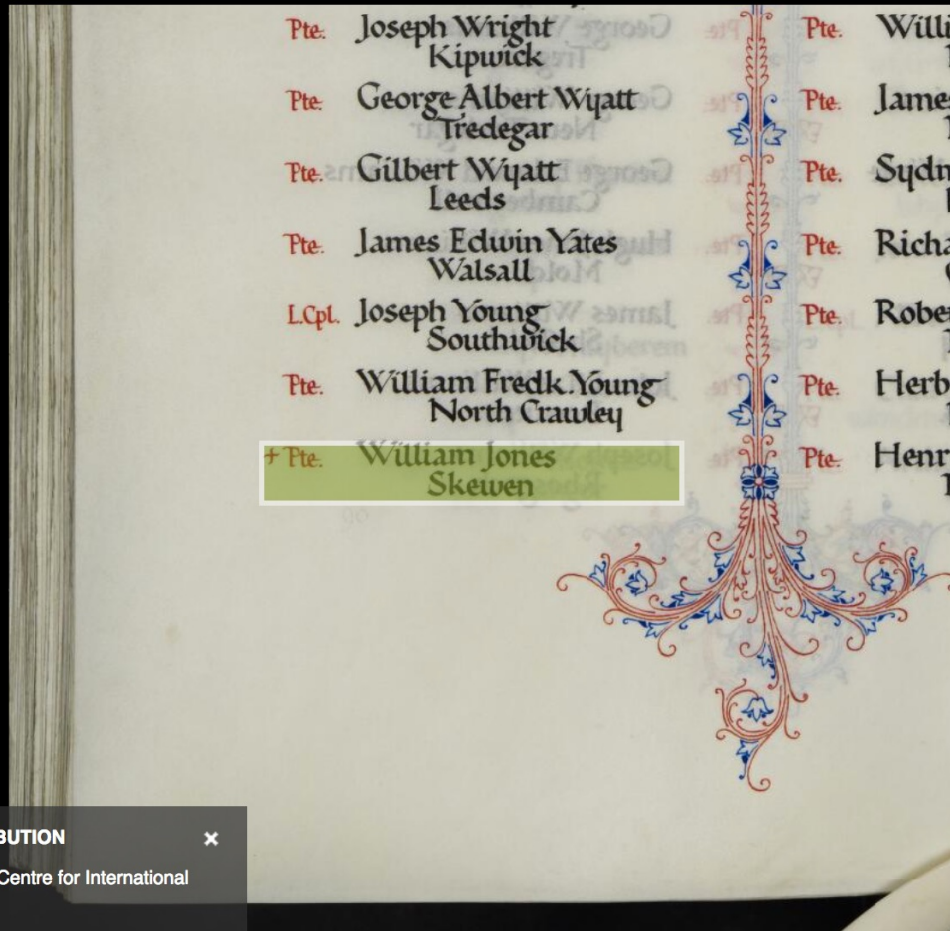 Pte. Joseph Wright
Kipwick
Pte. George Albert Wyatt
Tredegar
Pte. Gilbert Wyatt
Leeds
Pte. James Edwin Yates
Walsall
L.Cpl. Joseph Young
Southwick
Pte. William Fredk. Young
North Crawley
+ Pte. William Jones
Skewen
Pte. Willi
Pte. James
Pte. Sydn
Pte. Richa
Pte. Robe
Pte. Herb
Pte. Henr
BUTION ×
Centre for International